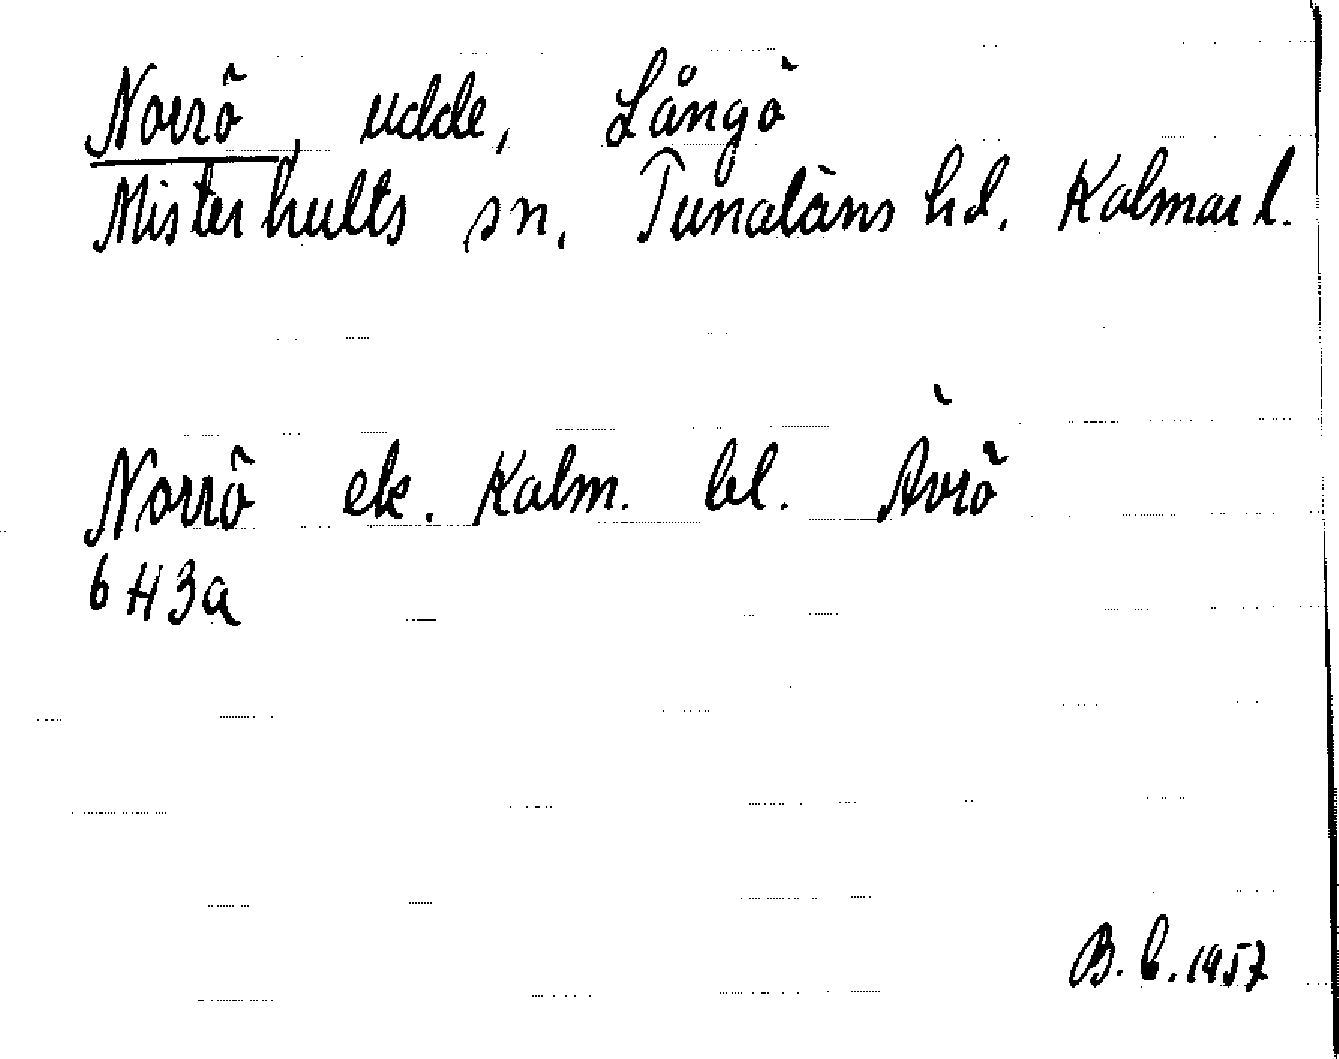 Norrö, udde, Långö
Misterhults sn. Tunaläns hd. Kalmar l.
Norrö ek. Kalm. bl. Ävrö
6H3a
B. L. 1957